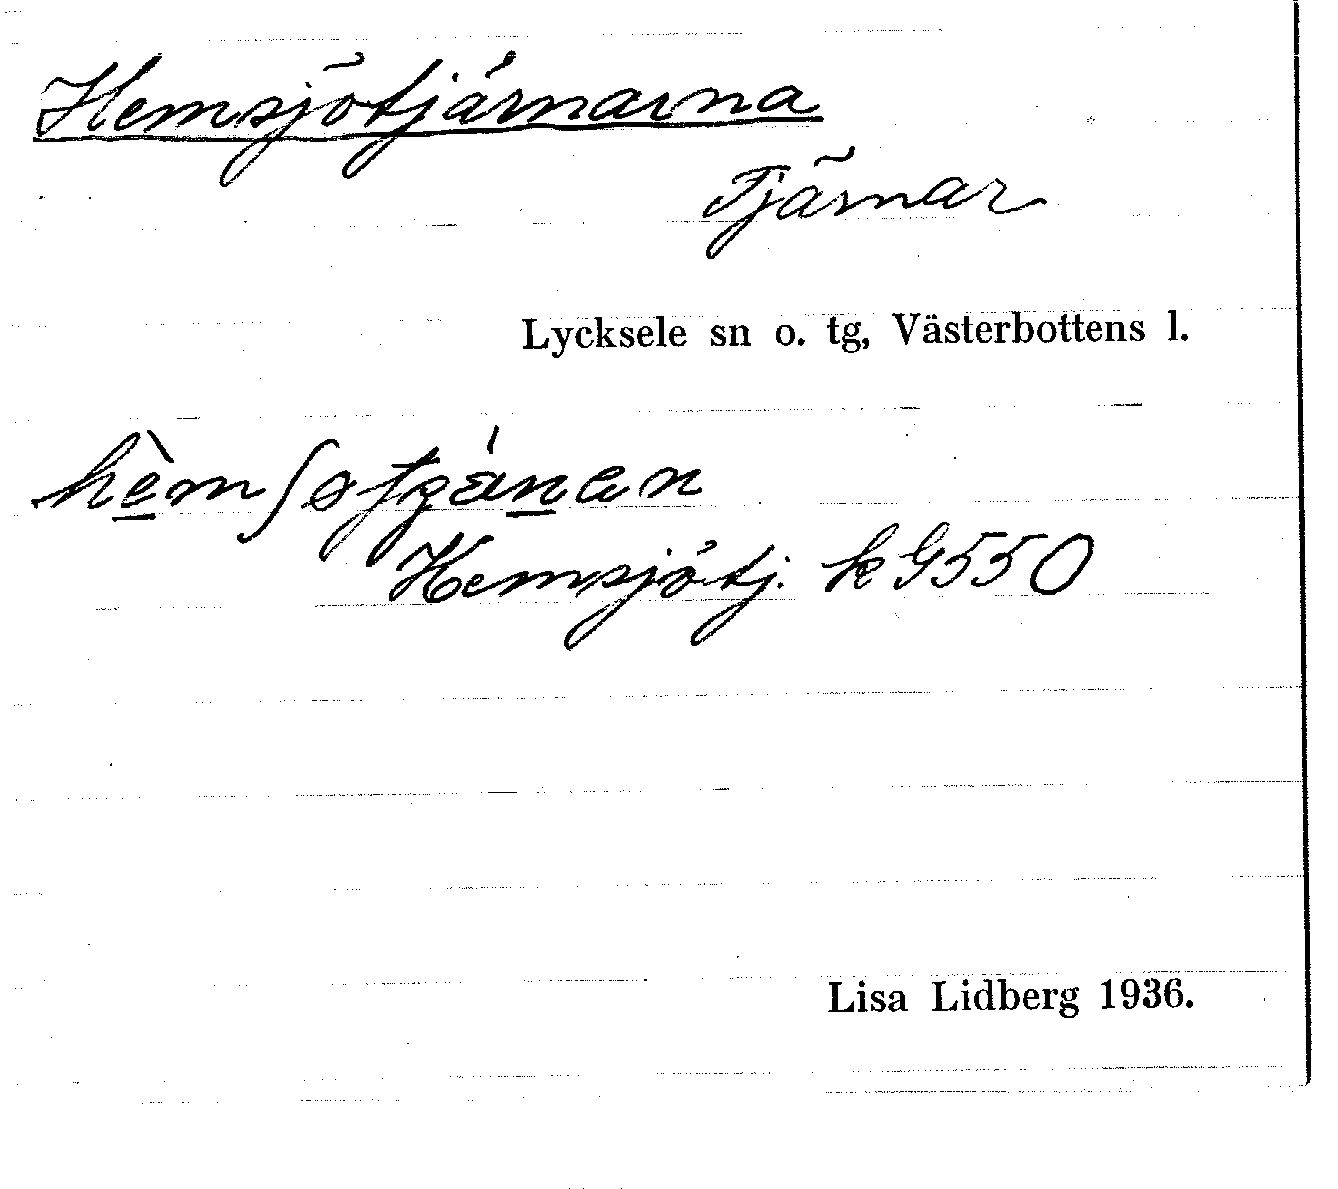 Hemsjötjärnarna
Tjärnar
Lycksele sn o. tg, Västerbottens l.
Hemsjötj. k G550
Lisa Lidberg 1936.